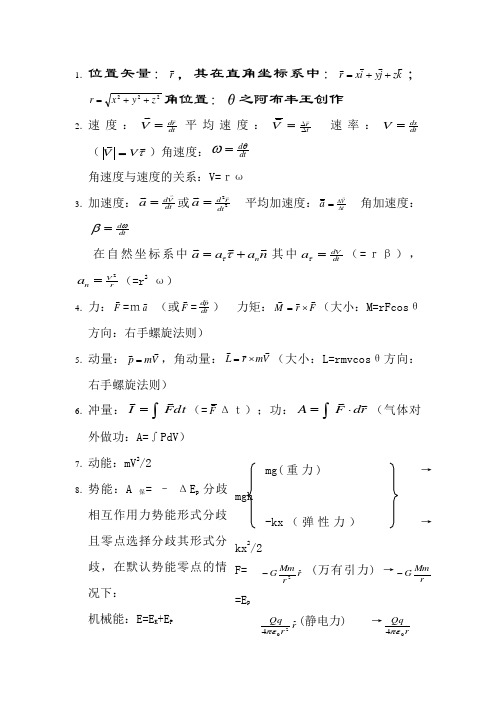 1. 位置矢量：r⃗，其在直角坐标系中：r⃗ = xi⃗ + yj⃗ + zk⃗；
r = √(x² + y² + z²) 角位置：θ之阿布丰王创作
2. 速度：V⃗ = dr⃗/dt 平均速度：V⃗ = Δr⃗/Δt 速率：V = ds/dt
（|V⃗| = V r⃗）角速度：ω = dθ/dt
角速度与速度的关系：V=rω
3. 加速度：a⃗ = dV⃗/dt 或 a⃗ = d²r⃗/dt² 平均加速度：a⃗ = ΔV⃗/Δt 角加速度：
β = dω/dt
在自然坐标系中 a⃗ = a_τ τ⃗ + a_n n⃗ 其中 a_τ = dv/dt（=rβ），
a_n = v²/r（=r² ω）
4. 力：F⃗=ma⃗ （或F⃗=dp⃗/dt） 力矩：M⃗ = r⃗ × F⃗（大小：M=rFcosθ
方向：右手螺旋法则）
5. 动量：p⃗ = mV⃗，角动量：L⃗ = r⃗ × mV⃗（大小：L=rmvcosθ方向：
右手螺旋法则）
6. 冲量：I⃗ = ∫F⃗dt（=F⃗Δt）；功：A = ∫F⃗·dr⃗（气体对
外做功：A=∫PdV）
7. 动能：mV²/2
8. 势能：A保= – ΔEp分歧
相互作用力势能形式分歧
且零点选择分歧其形式分
歧，在默认势能零点的情
况下：
机械能：E=EK+EP
mg(重力) →
mgh
-kx（弹性力） →
kx²/2
F= −G Mm/r² r̂ (万有引力) → −G Mm/r
=Ep
Qq/4πε₀r² r̂ (静电力) → Qq/4πε₀r